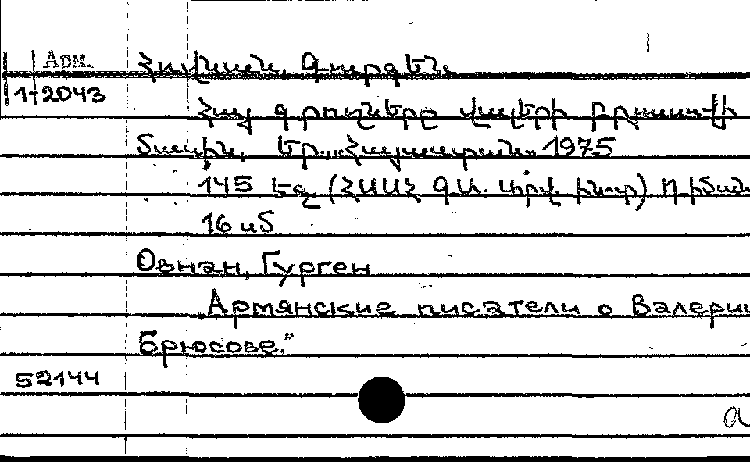 Арм.
Հովնան, Գուրգեն
1-2043
Հայ գրողները Վալերի Բրյուսովի
մասին, Եր., Հայաստան, 1975
145 եջ (ՀՍՍՀ ԳԱ. Արվ. ինստ)
16 սմ
Овнан, Гурген
Армянские писатели о Валерии
Брюсове."
52144